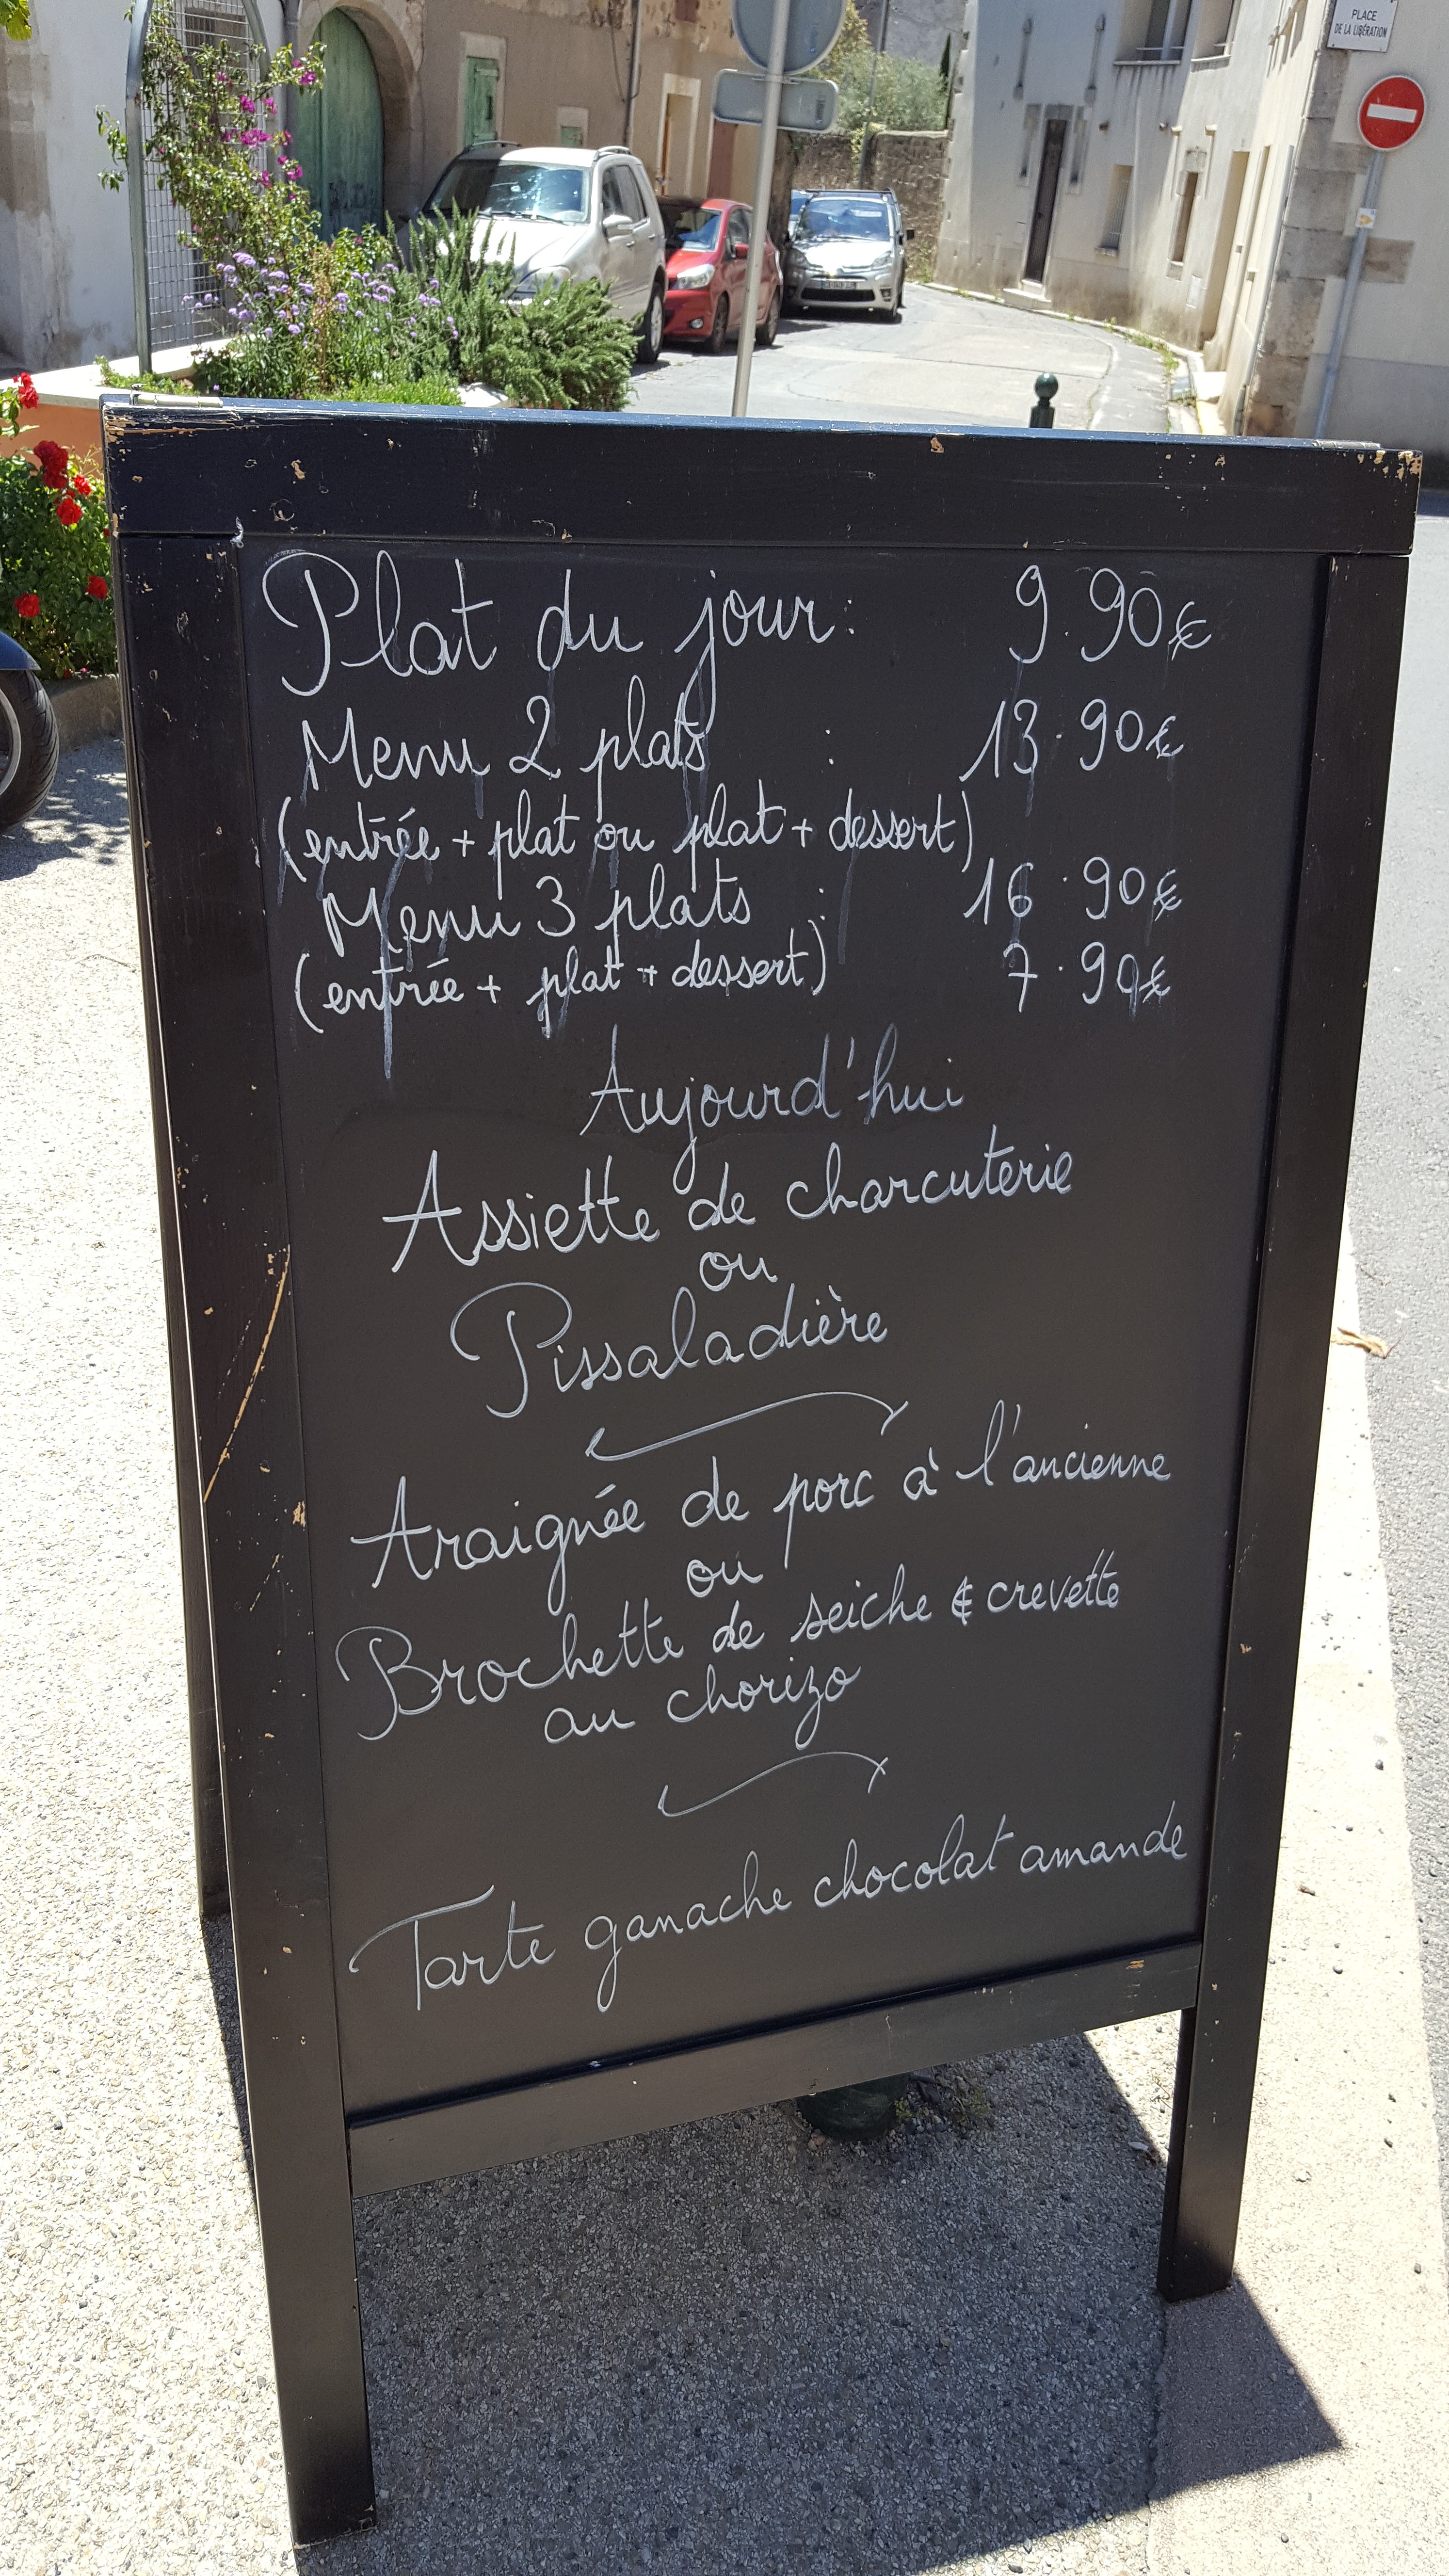 PLACE
DE LA LIBÉRATION
Plat du jour: 9.90€
Menu 2 plats : 13.90€
(entrée + plat ou plat + dessert)
Menu 3 plats : 16.90€
(entrée + plat + dessert) 7.90€
Aujourd'hui
Assiette de charcuterie
ou
Pissaladière
Araignée de porc à l'ancienne
ou
Brochette de seiche & crevette
au chorizo
Tarte ganache chocolat amande